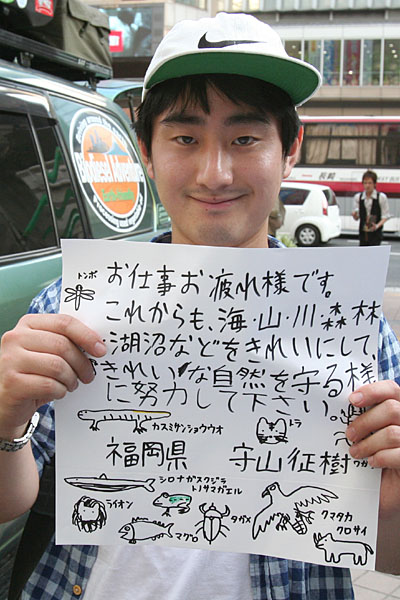 Biodiesel Adventure
トンボ
お仕事お疲れ様です。
これからも、海・山・川・森林
・湖沼などをきれいにして、
きれいな自然を守る様
に努力して下さい。
カスミサンショウウオ
トラ
福岡県 守山征樹
シロナガスクジラ
トノサマガエル
ライオン
マグロ
タガメ
クマタカ
クロサイ